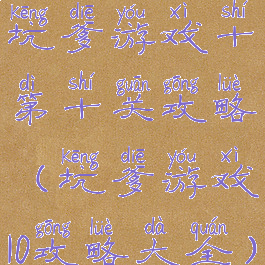 kēng diē yóu xì shí
坑爹游戏十
dì shí guān gōng lüè
第十关攻略
kēng diē yóu xì
(坑爹游戏
gōng lüè dà quán
10攻略大全)